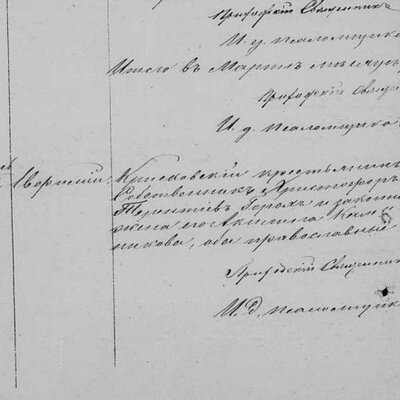 Приходскій Священник
И. д. псаломщика
Итого въ Мартѣ мѣсяцѣ
Приходскій Свящ
И. д. псаломщика
Крисковскій крестьянинъ
Собственникъ Христофоръ
Терентіевъ Горохъ и законная
жена его Акилина
никова, оба православные
Приходскій Священник
И. д. псаломщика